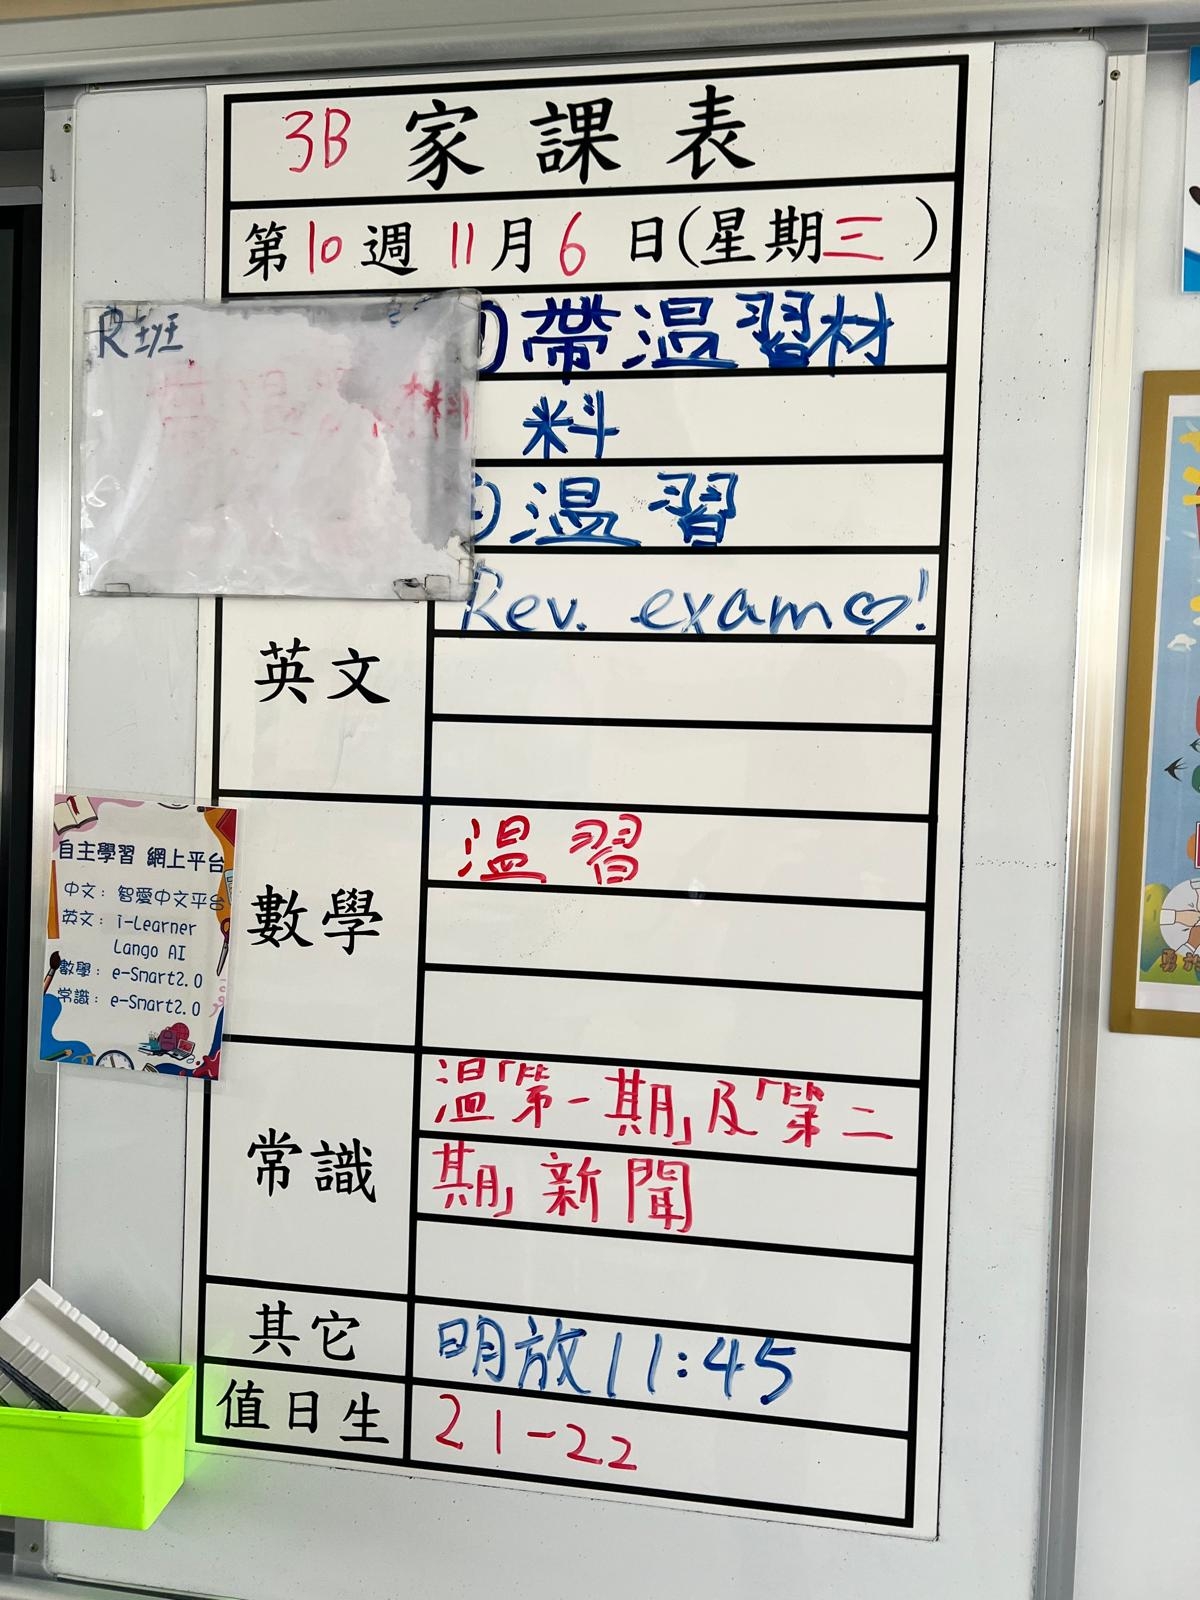 3B 家課表
第10週 11月6日(星期三)
R班
帶溫習材
料
溫習
Rev. exam♡!
英文
數學
溫習
自主學習 網上平台
中文：智愛中文平台
英文：i-Learner
Lango AI
數學：e-Smart2.0
常識：e-Smart2.0
常識
溫「第一期」及「第二
期」新聞
其它
明放11:45
值日生
21-22